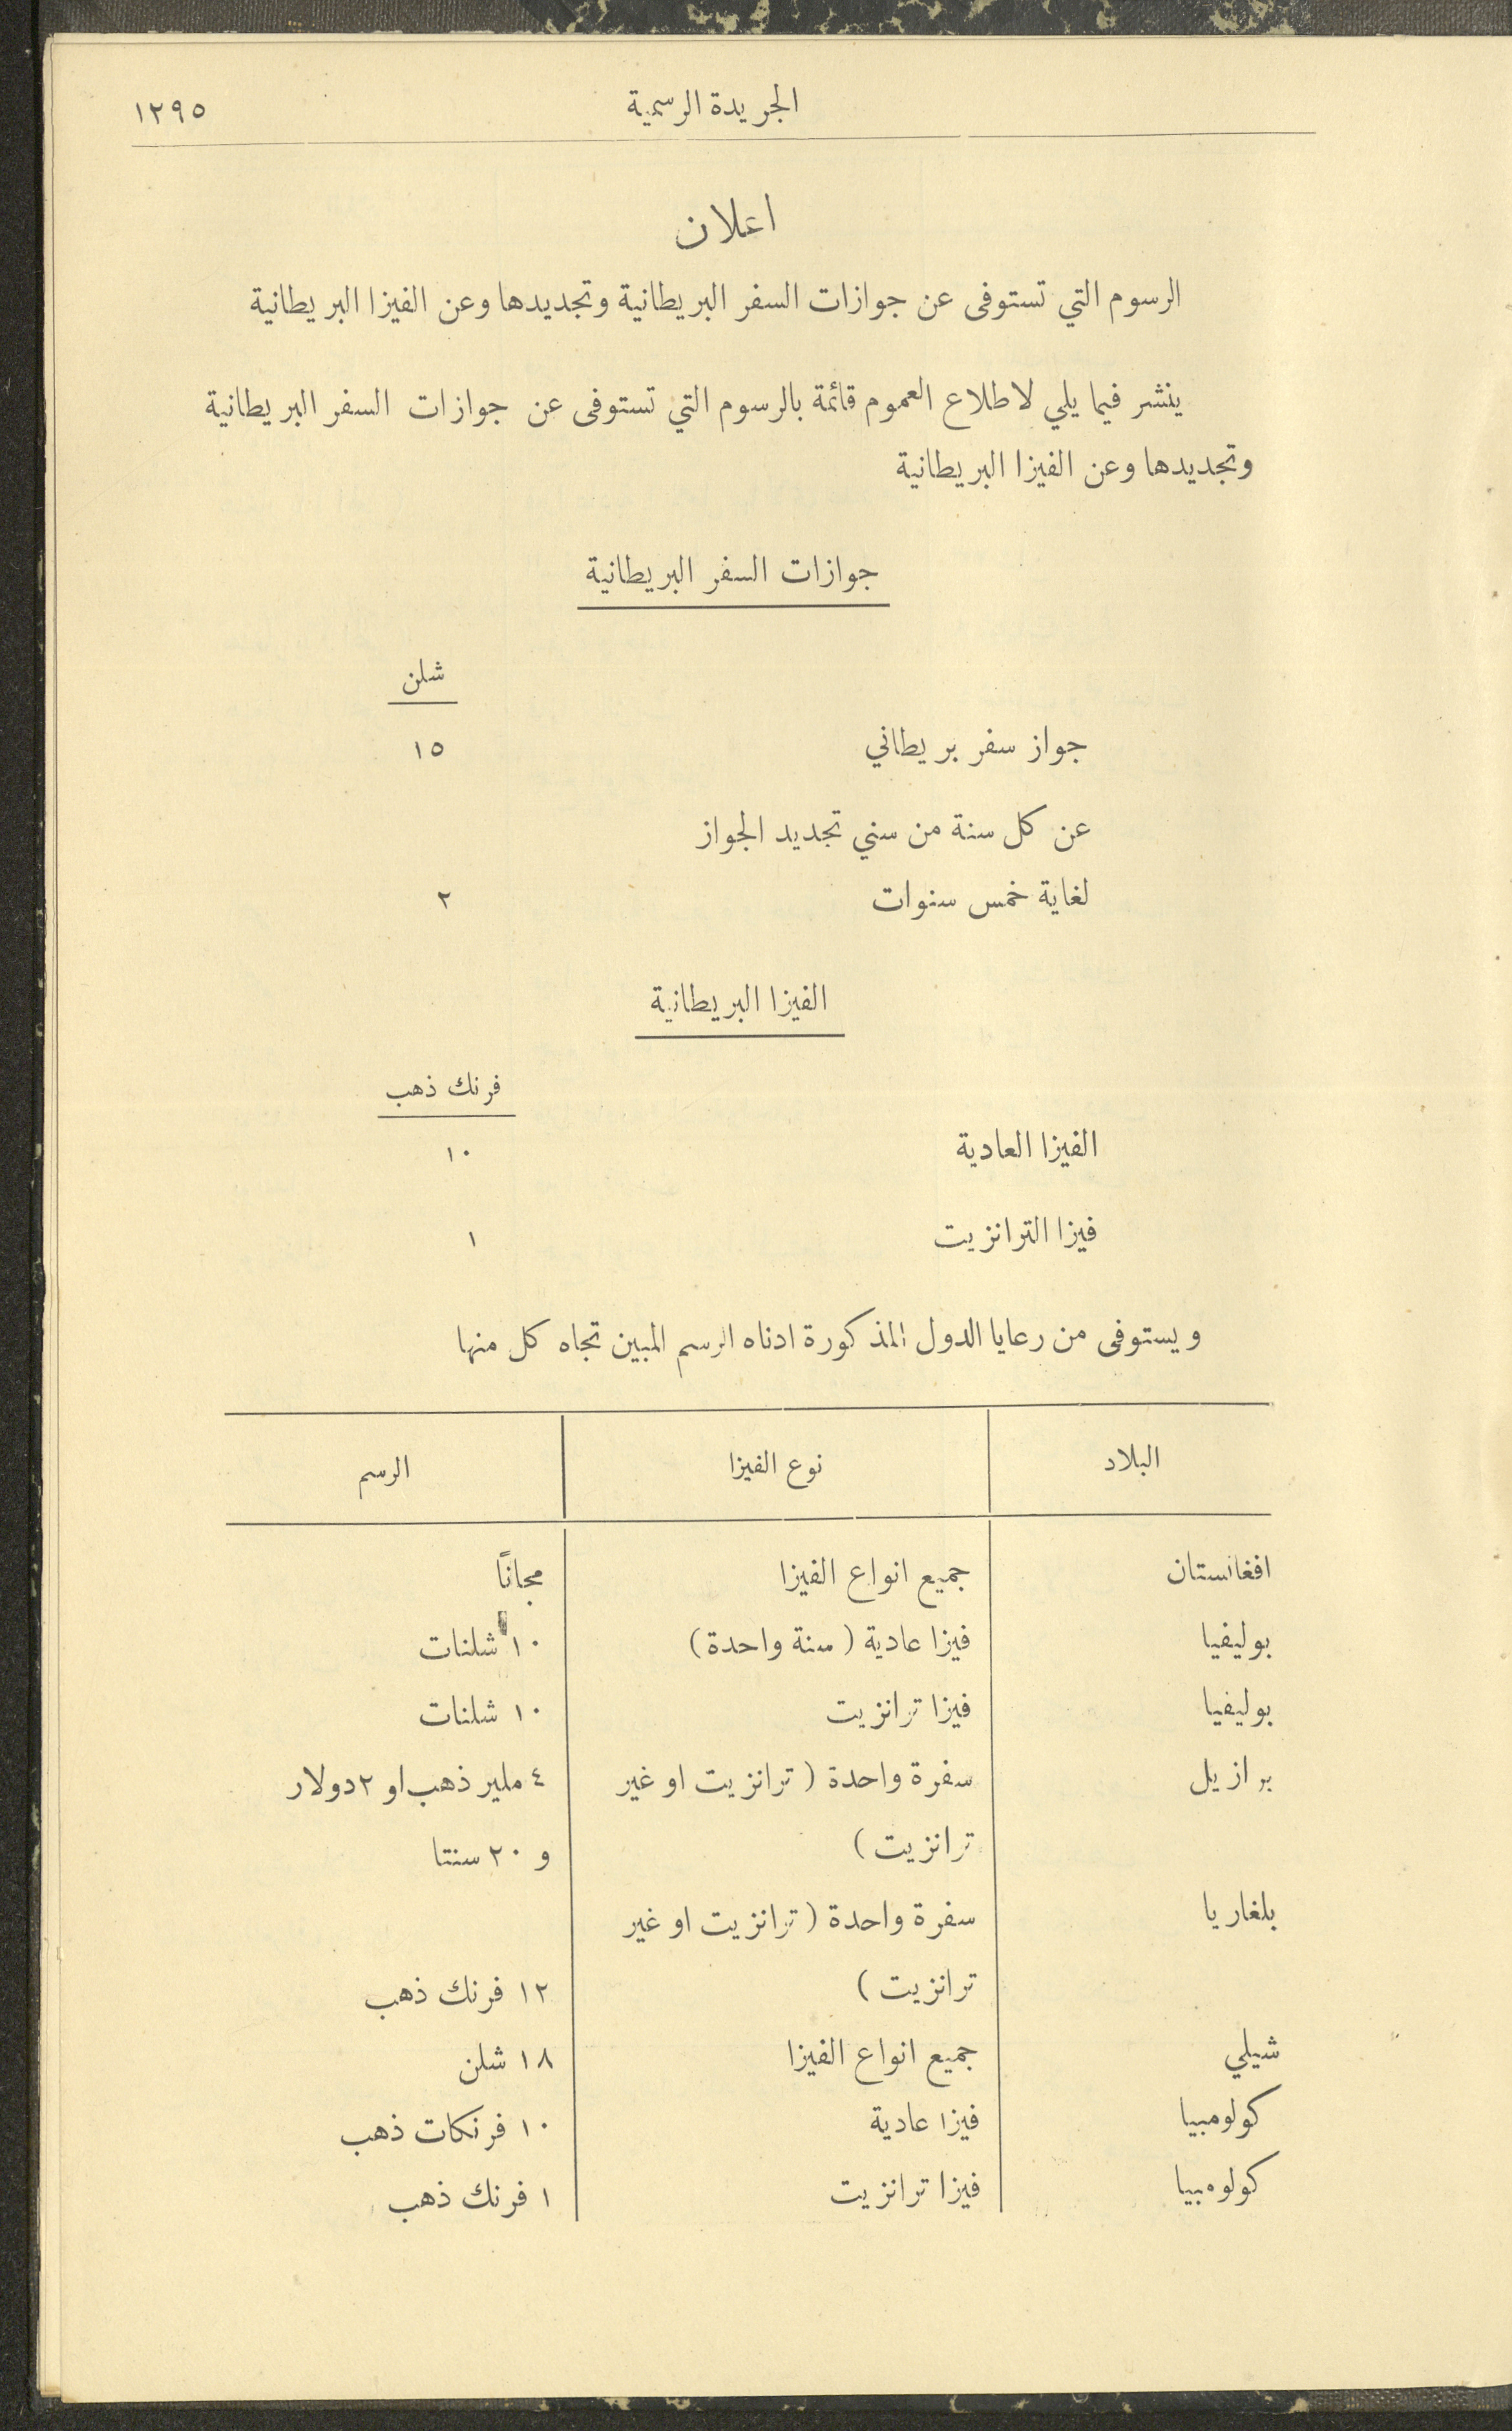 الجريدة الرسمية ١٢٩٥
اعلان
الرسوم التي تستوفى عن جوازات السفر البريطانية وتجديدها وعن الفيزا البريطانية
ينشر فيما يلي لاطلاع العموم قائمة بالرسوم التي تستوفى عن جوازات السفر البريطانية
وتجديدها وعن الفيزا البريطانية
جوازات السفر البريطانية
شلن
جواز سفر بريطاني ١٥
عن كل سنة من سني تجديد الجواز
لغاية خمس سنوات ٢
الفيزا البريطانية
فرنك ذهب
الفيزا العادية ١٠
فيزا الترانزيت ١
ويستوفى من رعايا الدول المذكورة ادناه الرسم المبين تجاه كل منها
البلاد نوع الفيزا الرسم
افغانستان جميع انواع الفيزا مجاناً
بوليفيا فيزا عادية (سنة واحدة) ١٠ شلنات
بوليفيا فيزا ترانزيت ١٠ شلنات
برازيل سفرة واحدة (ترانزيت او غير ٤ ملير ذهب او ٢ دولار
ترانزيت) و ٢٠ سنتا
بلغاريا سفرة واحدة (ترانزيت او غير
ترانزيت) ١٢ فرنك ذهب
شيلي جميع انواع الفيزا ١٨ شلن
كولومبيا فيزا عادية ١٠ فرنكات ذهب
كولومبيا فيزا ترانزيت ١ فرنك ذهب